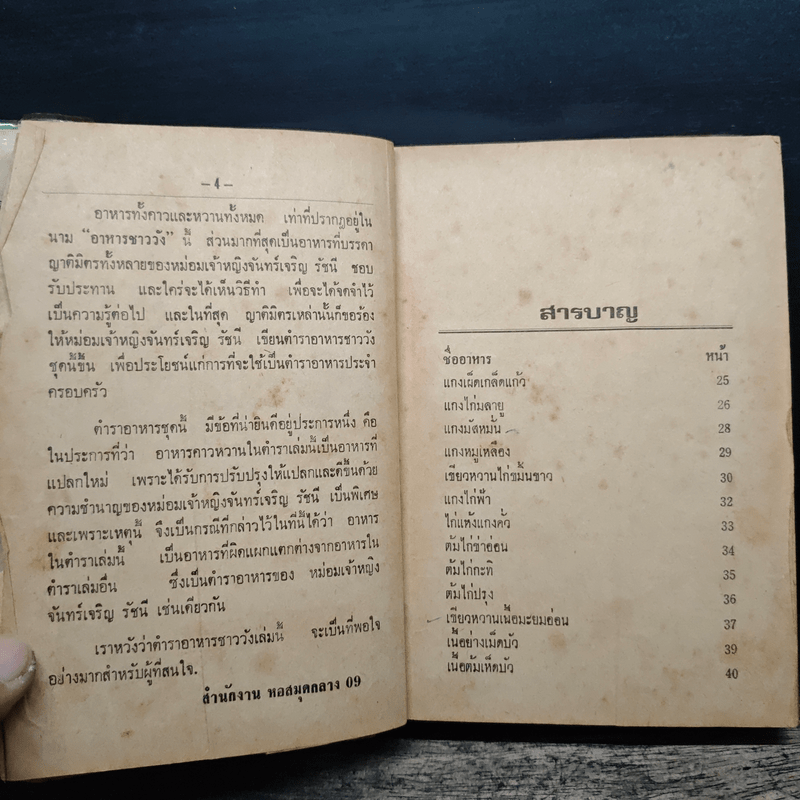 —4—
อาหารทั้งคาวและหวานทั้งหมด เท่าที่ปรากฏอยู่ใน
นาม “อาหารชาววัง” นี้ ส่วนมากที่สุดเป็นอาหารที่บรรดา
ญาติมิตรทั้งหลายของหม่อมเจ้าหญิงจันทร์เจริญ รัชนี ชอบ
รับประทาน และใคร่จะได้เห็นวิธีทำ เพื่อจะได้จดจำไว้
เป็นความรู้ต่อไป และในที่สุด ญาติมิตรเหล่านั้นก็ขอร้อง
ให้หม่อมเจ้าหญิงจันทร์เจริญ รัชนี เขียนตำราอาหารชาววัง
ชุดนี้ขึ้น เพื่อประโยชน์แก่การที่จะใช้เป็นตำราอาหารประจำ
ครอบครัว
ตำราอาหารชุดนี้ มีข้อที่น่ายินดีอยู่ประการหนึ่ง คือ
ในประการที่ว่า อาหารคาวหวานในตำราเล่มนี้เป็นอาหารที่
แปลกใหม่ เพราะได้รับการปรับปรุงให้แปลกและดีขึ้นด้วย
ความชำนาญของหม่อมเจ้าหญิงจันทร์เจริญ รัชนี เป็นพิเศษ
และเพราะเหตุนี้ จึงเป็นกรณีที่กล่าวไว้ในที่นี้ได้ว่า อาหาร
ในตำราเล่มนี้ เป็นอาหารที่ผิดแผกแตกต่างจากอาหารใน
ตำราเล่มอื่น ซึ่งเป็นตำราอาหารของ หม่อมเจ้าหญิง
จันทร์เจริญ รัชนี เช่นเดียวกัน
เราหวังว่าตำราอาหารชาววังเล่มนี้ จะเป็นที่พอใจ
อย่างมากสำหรับผู้ที่สนใจ.
สำนักงาน หอสมุดกลาง 09
สารบาญ
ชื่ออาหาร หน้า
แกงเผ็ดเกล็ดแก้ว 25
แกงไก่มลายู 26
แกงมัสหมั่น 28
แกงหมูเหลือง 29
เขียวหวานไก่ขมิ้นขาว 30
แกงไก่ฟ้า 32
ไก่แห้งแกงคั่ว 33
ต้มไก่ข่าอ่อน 34
ต้มไก่กะทิ 35
ต้มไก่ปรุง 36
เขียวหวานเนื้อมะยมอ่อน 37
เนื้อย่างเม็ดบัว 39
เนื้อต้มเห็ดบัว 40